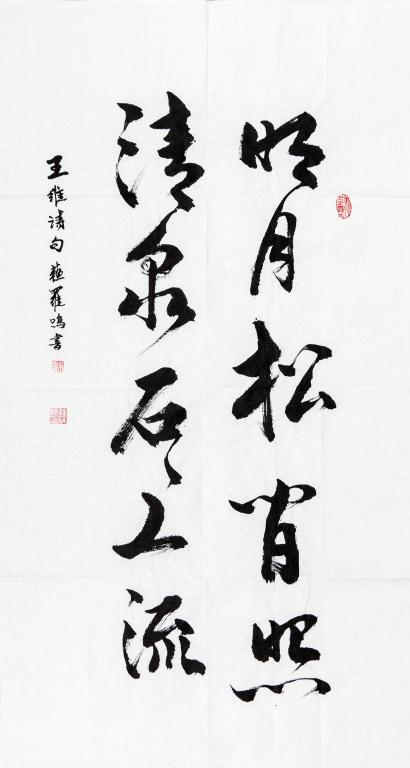 明月松间照
清泉石上流
王维诗句 苏罗鸣书